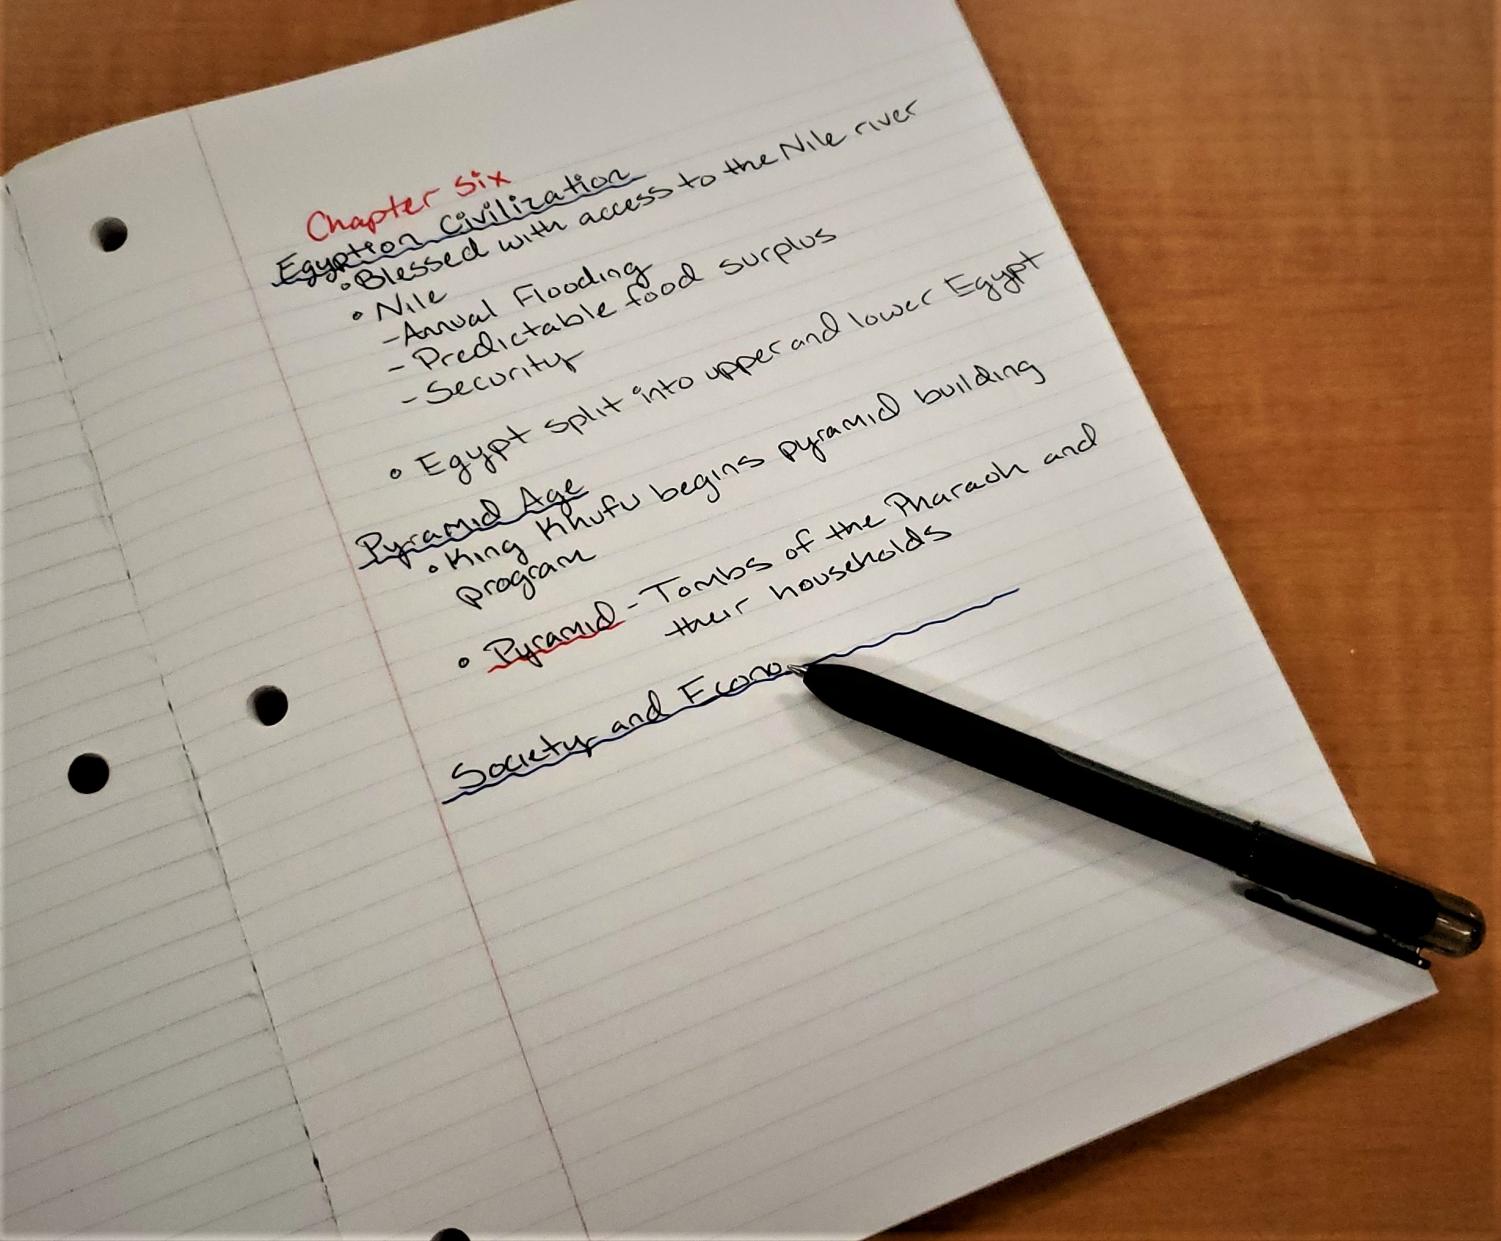 Chapter Six
Egyption Civilization
• Blessed with access to the Nile river
• Nile
- Annual Flooding
- Predictable food surplus
- Security
• Egypt split into upper and lower Egypt
Pyramid Age
• King Khufu begins pyramid building
program
• Pyramid - Tombs of the Pharaoh and
their households
Society and Econo